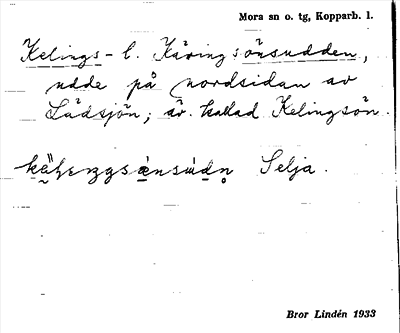 Mora sn o. tg, Kopparb. l.
Kelings- l. Käringsönsudden,
udde på nordsidan av
Lådsjön; äv. kallad Kelingsön.
Selja.
Bror Lindén 1933